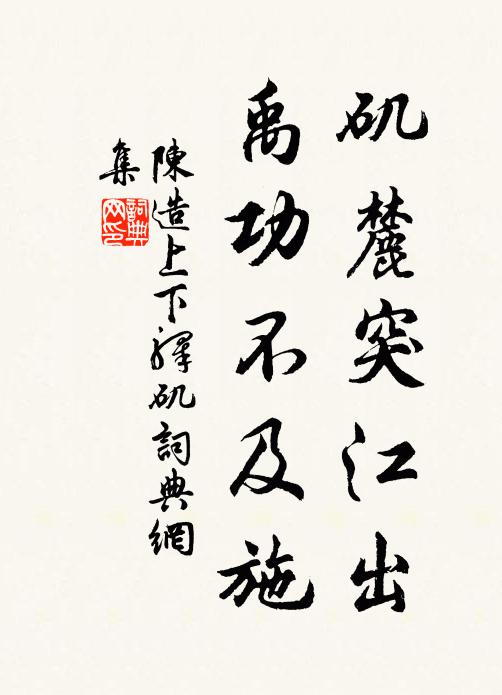 矶麓突江出
禹功不及施
陳造上下釋矶詞典網
集
詞典
网印